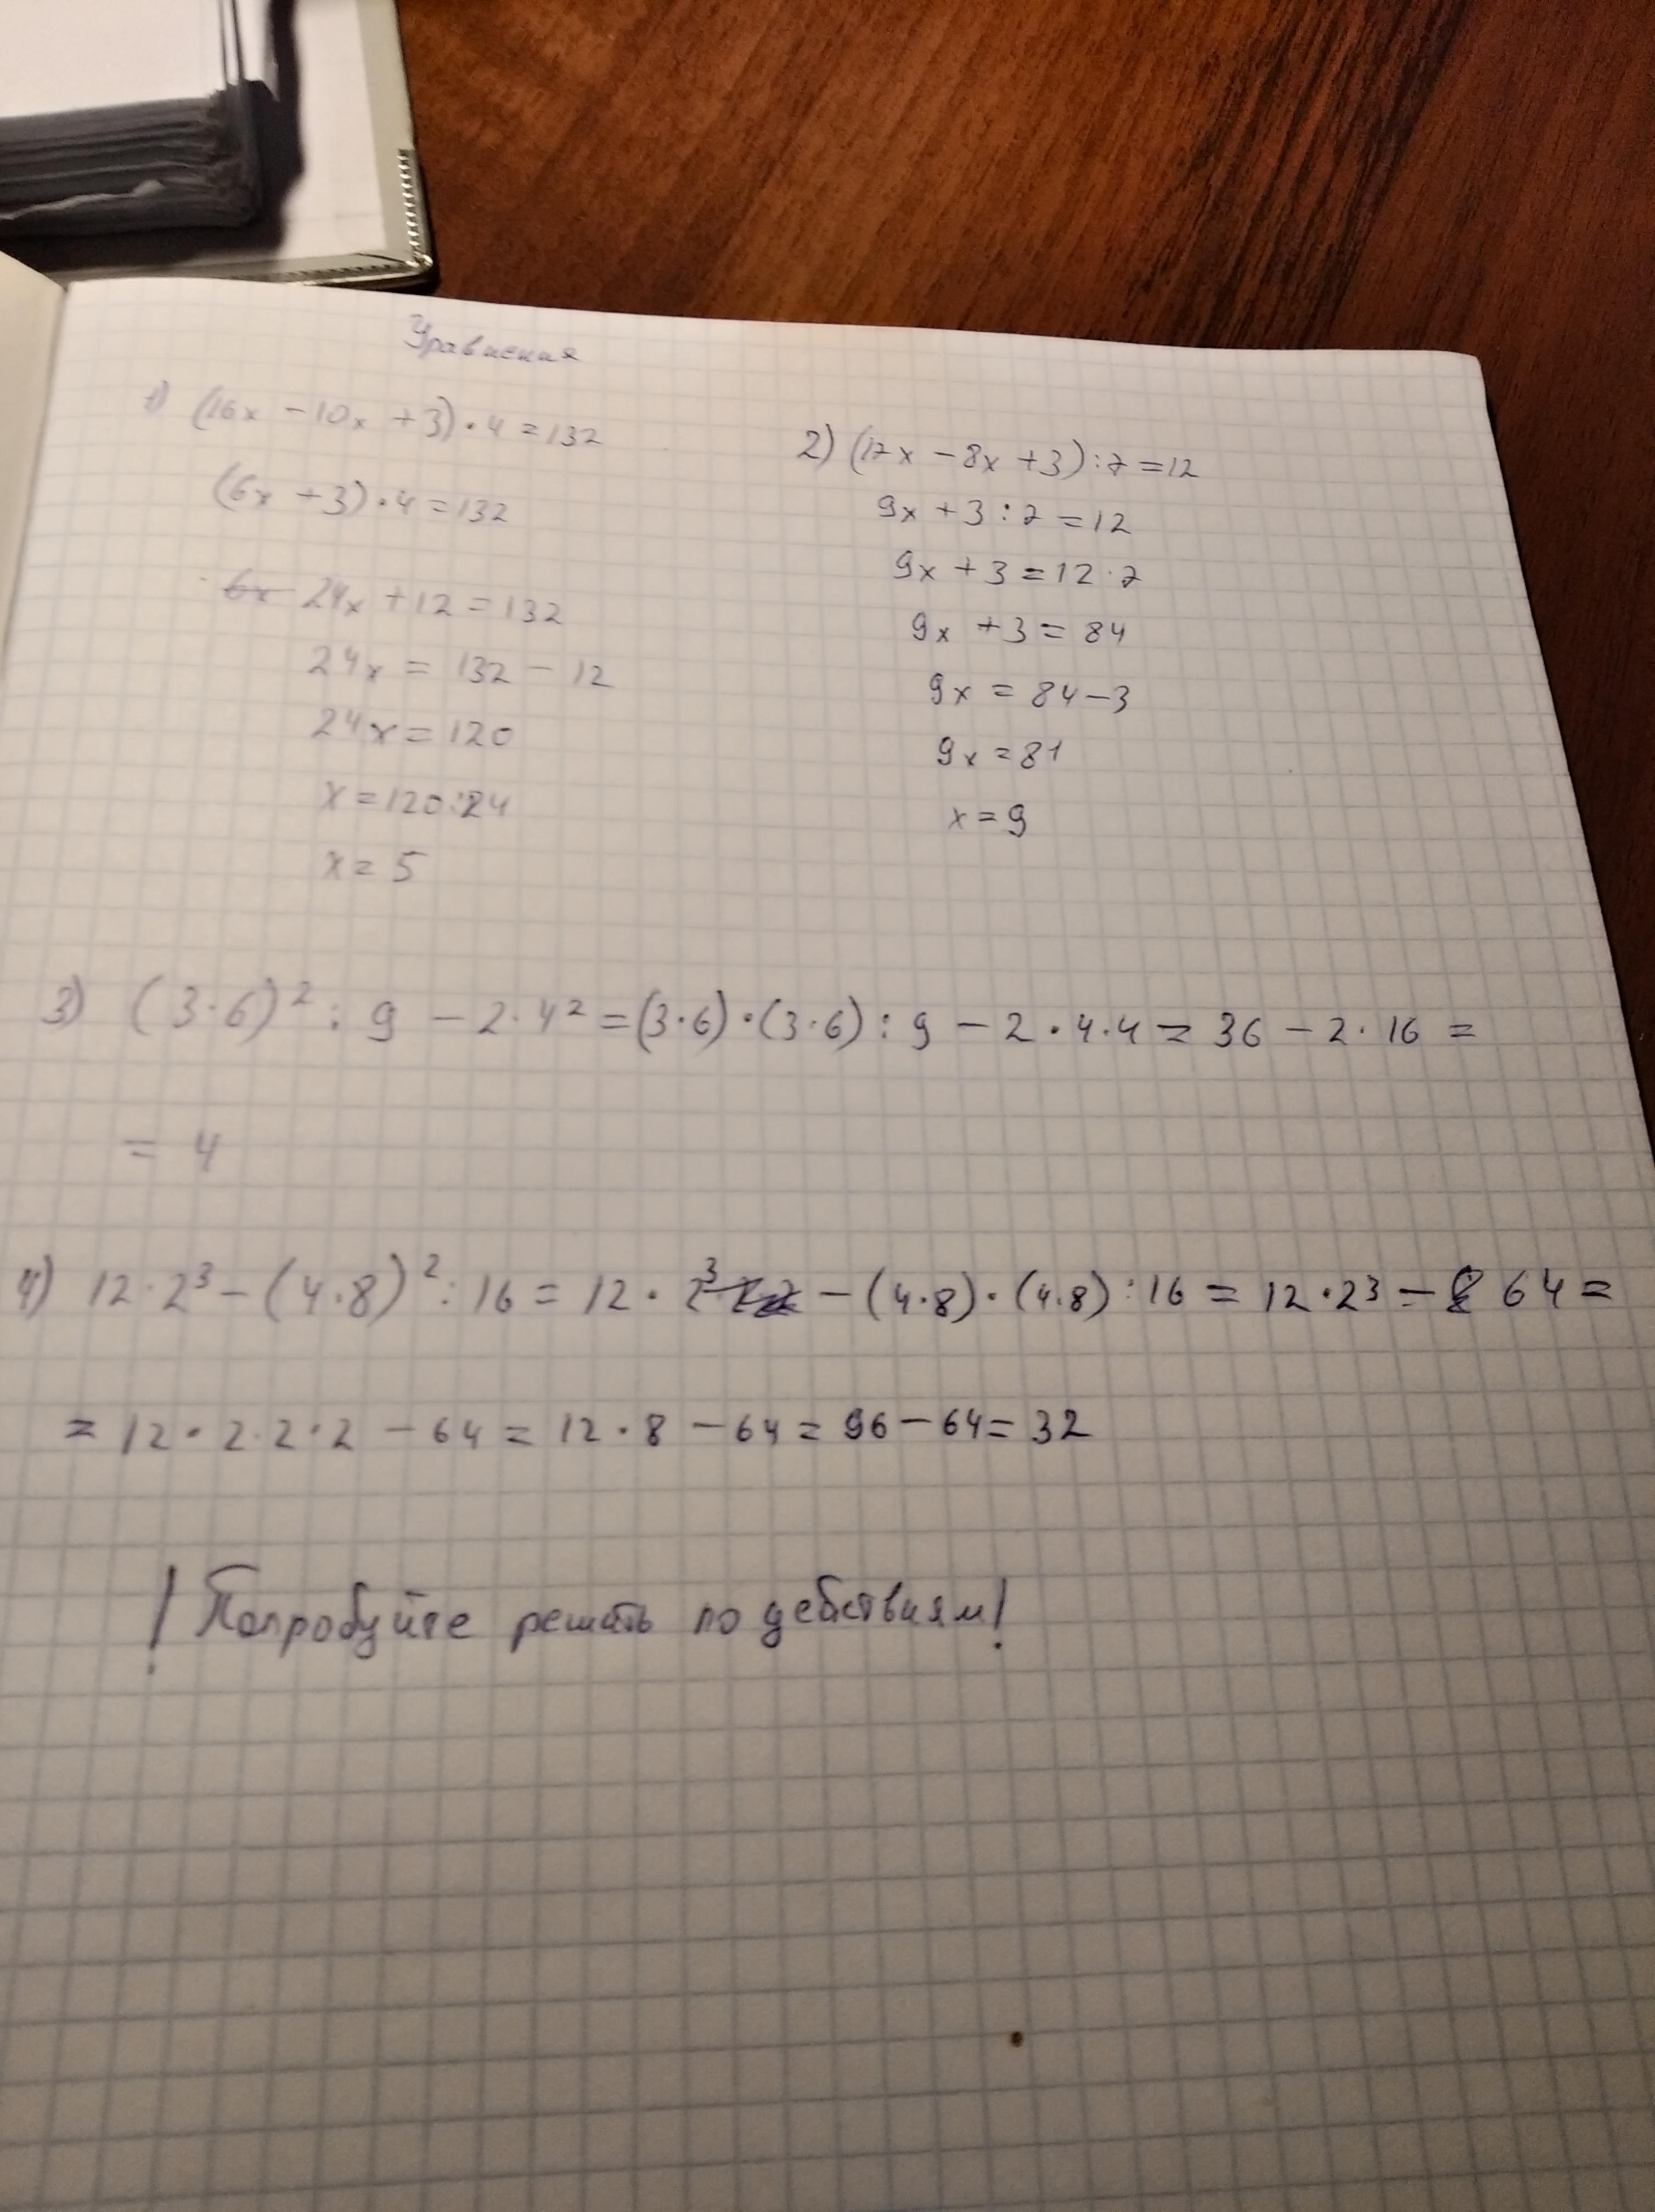 Уравнения
1) (16x - 10x + 3) · 4 = 132
(6x + 3) · 4 = 132
6x 24x + 12 = 132
24x = 132 - 12
24x = 120
x = 120 : 24
x = 5
2) (17x - 8x + 3) : 7 = 12
9x + 3 : 7 = 12
9x + 3 = 12 · 7
9x + 3 = 84
9x = 84 - 3
9x = 81
x = 9
3) (3·6)² : 9 - 2·4² = (3·6)·(3·6) : 9 - 2·4·4 = 36 - 2·16 =
= 4
4) 12·2³ - (4·8)² : 16 = 12 · 2³ - (4·8)·(4·8) : 16 = 12·2³ - 64 =
= 12·2·2·2 - 64 = 12·8 - 64 = 96 - 64 = 32
! Попробуйте решать по действиям!